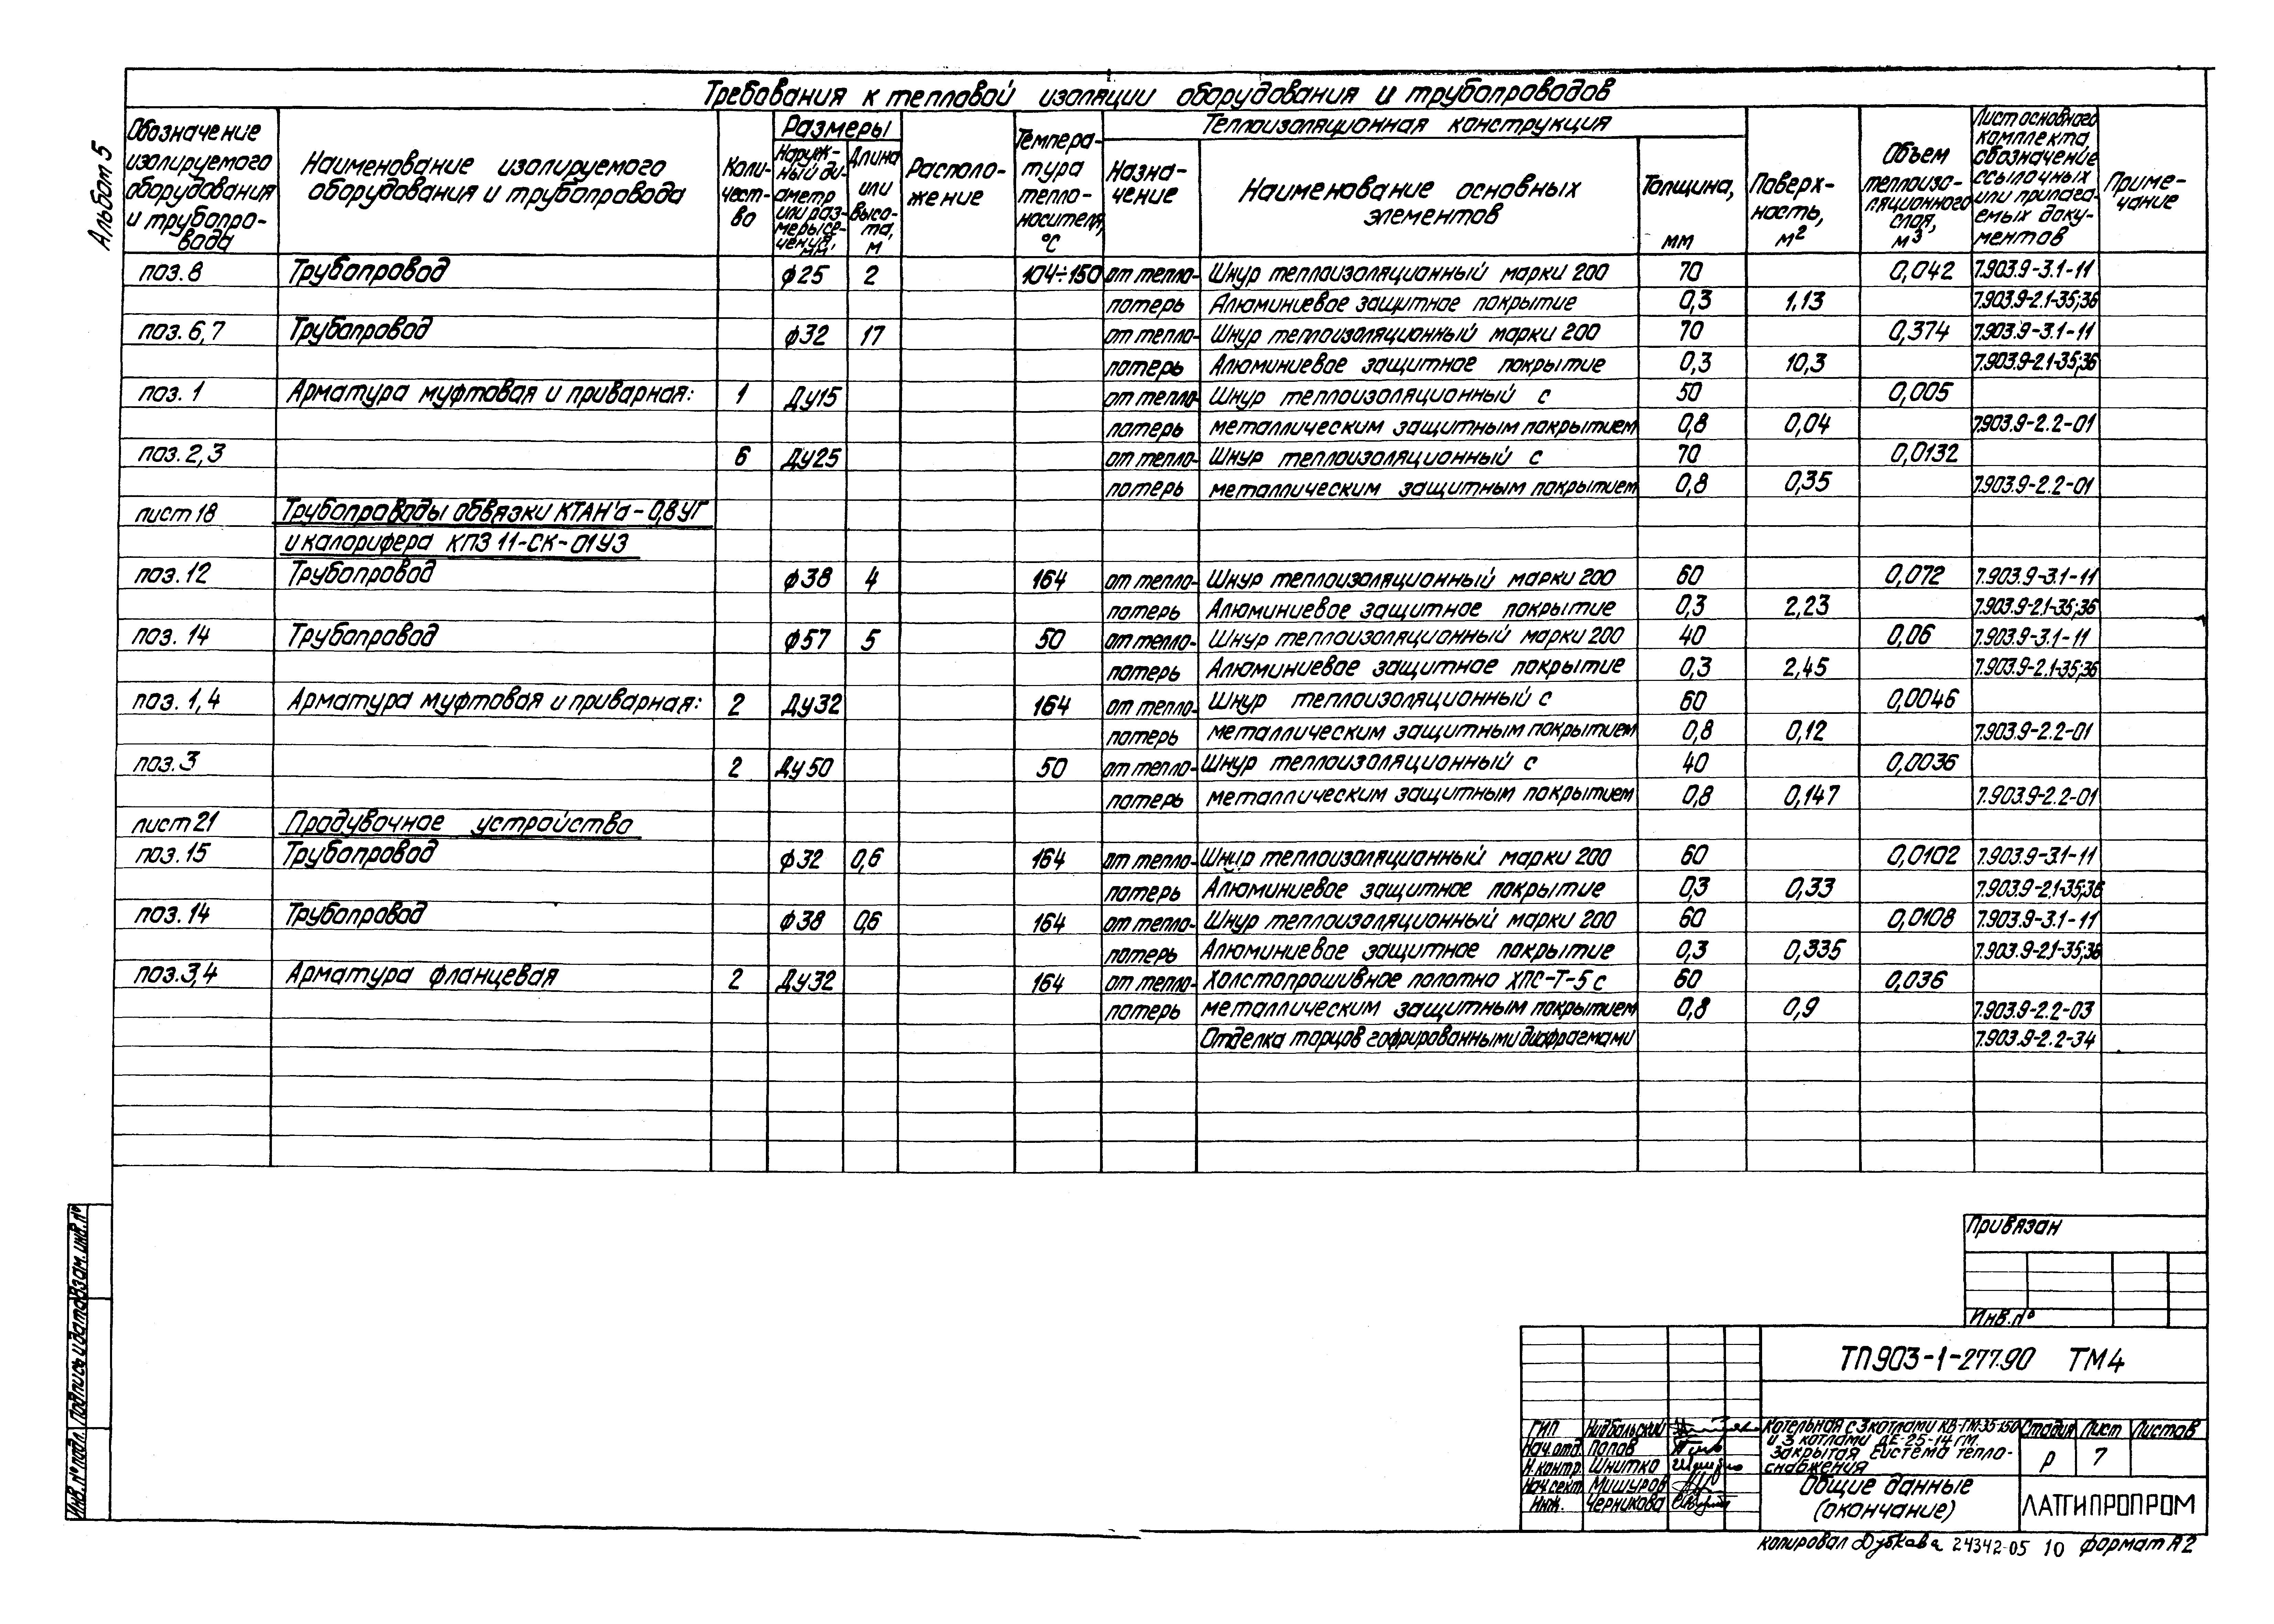 Альбом 5
Требования к тепловой изоляции оборудования и трубопроводов
Обозначение
изолируемого
оборудования
и трубопро-
вода
Наименование изолируемого
оборудования и трубопровода
Коли-
чест-
во
Размеры
Наруж-
ный ди-
аметр
или раз-
меры се-
чения,
мм
Длина
или
высо-
та,
м
Располо-
жение
Темпера-
тура
тепло-
носителя,
°С
Теплоизоляционная конструкция
Назна-
чение
Наименование основных
элементов
Толщина,
мм
Поверх-
ность,
м²
Объем
теплоизо-
ляционного
слоя,
м³
Лист основного
комплекта,
обозначение
ссылочных
или прилага-
емых доку-
ментов
Приме-
чание
поз. 8 Трубопровод ϕ25 2 104÷150 от тепло- Шнур теплоизоляционный марки 200 70 0,042 7.903.9-3.1-11
потерь Алюминиевое защитное покрытие 0,3 1,13 7.903.9-2.1-35;36
поз. 6,7 Трубопровод ϕ32 17 от тепло- Шнур теплоизоляционный марки 200 70 0,374 7.903.9-3.1-11
потерь Алюминиевое защитное покрытие 0,3 10,3 7.903.9-2.1-35;36
поз. 1 Арматура муфтовая и приварная: 1 Ду15 от тепло- Шнур теплоизоляционный с 50 0,005
потерь металлическим защитным покрытием 0,8 0,04 7.903.9-2.2-01
поз. 2,3 6 Ду25 от тепло- Шнур теплоизоляционный с 70 0,0132
потерь металлическим защитным покрытием 0,8 0,35 7.903.9-2.2-01
лист 18 Трубопроводы обвязки КТАН'а-0,8УГ
и калорифера КПЗ 11-СК-01УЗ
поз. 12 Трубопровод ϕ38 4 164 от тепло- Шнур теплоизоляционный марки 200 60 0,072 7.903.9-3.1-11
потерь Алюминиевое защитное покрытие 0,3 2,23 7.903.9-2.1-35;36
поз. 14 Трубопровод ϕ57 5 50 от тепло- Шнур теплоизоляционный марки 200 40 0,06 7.903.9-3.1-11
потерь Алюминиевое защитное покрытие 0,3 2,45 7.903.9-2.1-35;36
поз. 1,4 Арматура муфтовая и приварная: 2 Ду32 164 от тепло- Шнур теплоизоляционный с 60 0,0046
потерь металлическим защитным покрытием 0,8 0,12 7.903.9-2.2-01
поз. 3 2 Ду50 50 от тепло- Шнур теплоизоляционный с 40 0,0036
потерь металлическим защитным покрытием 0,8 0,147 7.903.9-2.2-01
лист 21 Продувочное устройство
поз. 15 Трубопровод ϕ32 0,6 164 от тепло- Шнур теплоизоляционный марки 200 60 0,0102 7.903.9-3.1-11
потерь Алюминиевое защитное покрытие 0,3 0,33 7.903.9-2.1-35;36
поз. 14 Трубопровод ϕ38 0,6 164 от тепло- Шнур теплоизоляционный марки 200 60 0,0108 7.903.9-3.1-11
потерь Алюминиевое защитное покрытие 0,3 0,335 7.903.9-2.1-35;36
поз. 3,4 Арматура фланцевая 2 Ду32 164 от тепло- Холстопрошивное полотно ХПС-Т-5 с 60 0,036
потерь металлическим защитным покрытием 0,8 0,9 7.903.9-2.2-03
Отделка торцов гофрированными диафрагмами 7.903.9-2.2-34
Привязан
Инв.№
ТП903-1-277.90 ТМ4
ГИП Нидбальский
Нач.отд. Попов
Н.контр. Шнитко
Нач.сект. Мишуров
Инж. Черникова
Котельная с 3 котлами КВ-ГМ-35-150
и 3 котлами ДЕ-25-14ГМ.
Закрытая система тепло-
снабжения
Стадия Лист Листов
Р 7
Общие данные
(окончание)
ЛАТГИПРОПРОМ
Копировал Дубкова 24342-05 10 формат А2
Инв.№подл. Подпись и дата Взам.инв.№